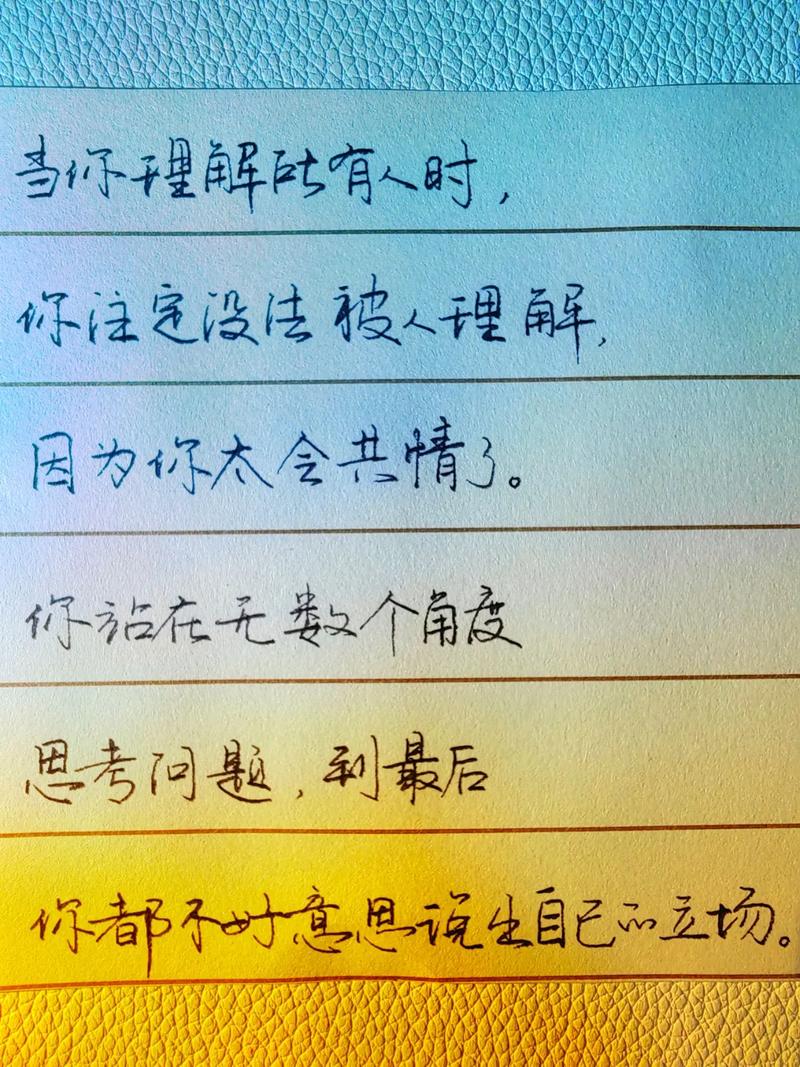 当你理解所有人时，
你注定没法被人理解，
因为你太会共情了。
你站在无数个角度
思考问题，到最后
你都不好意思说出自己的立场。